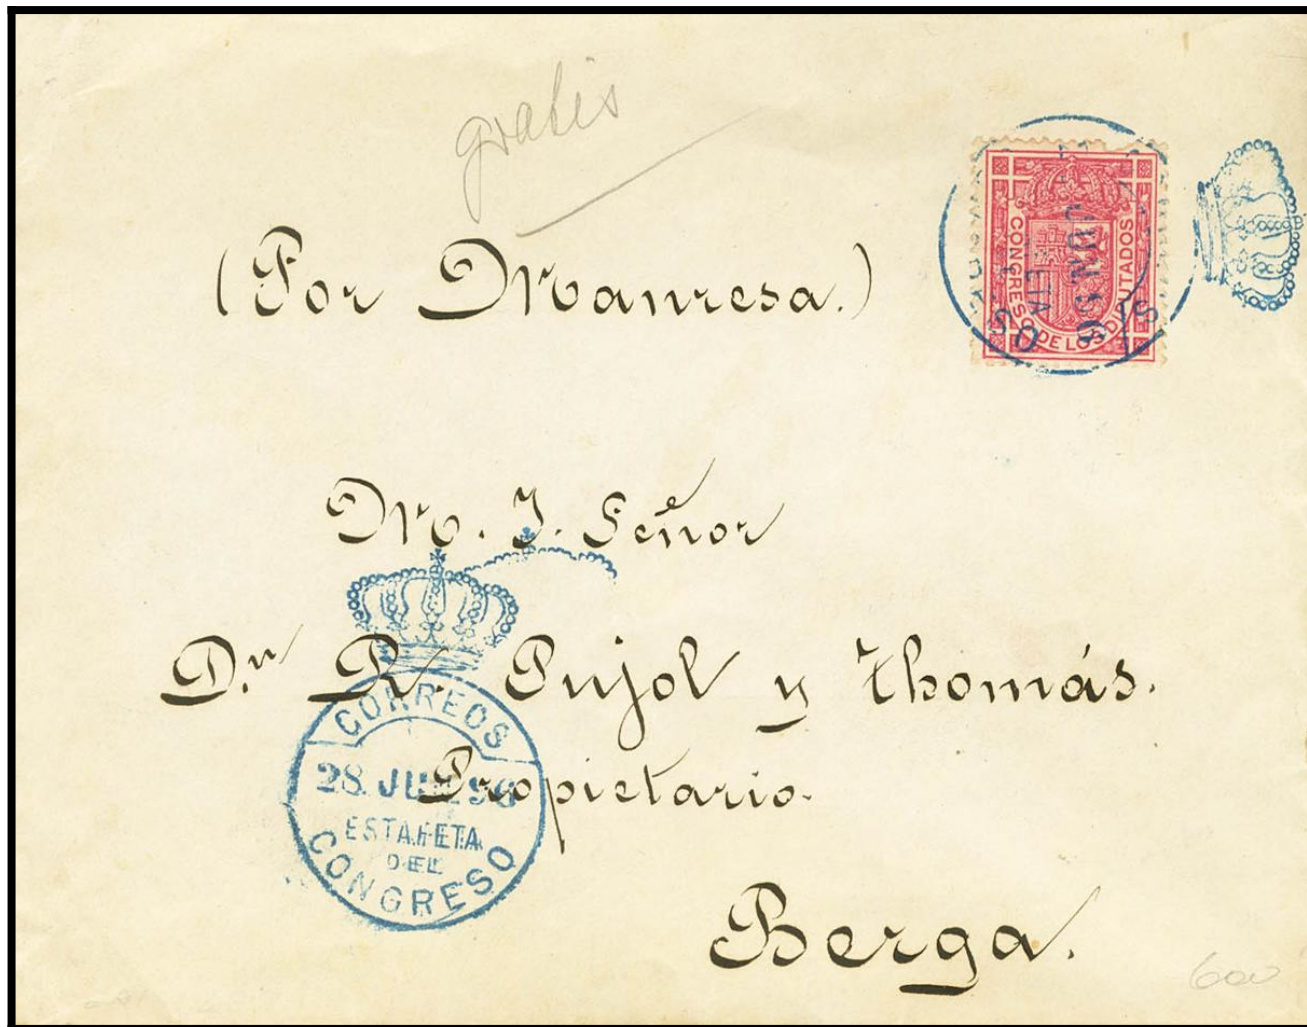 gratis
(Por Manresa.)
CONGRESO DE LOS DIPUTADOS
M. I. Señor
Dn R. Pujol y Thomás.
Propietario.
Berga.
CORREOS
28 JUN 96
ESTAFETA
DEL
CONGRESO
600